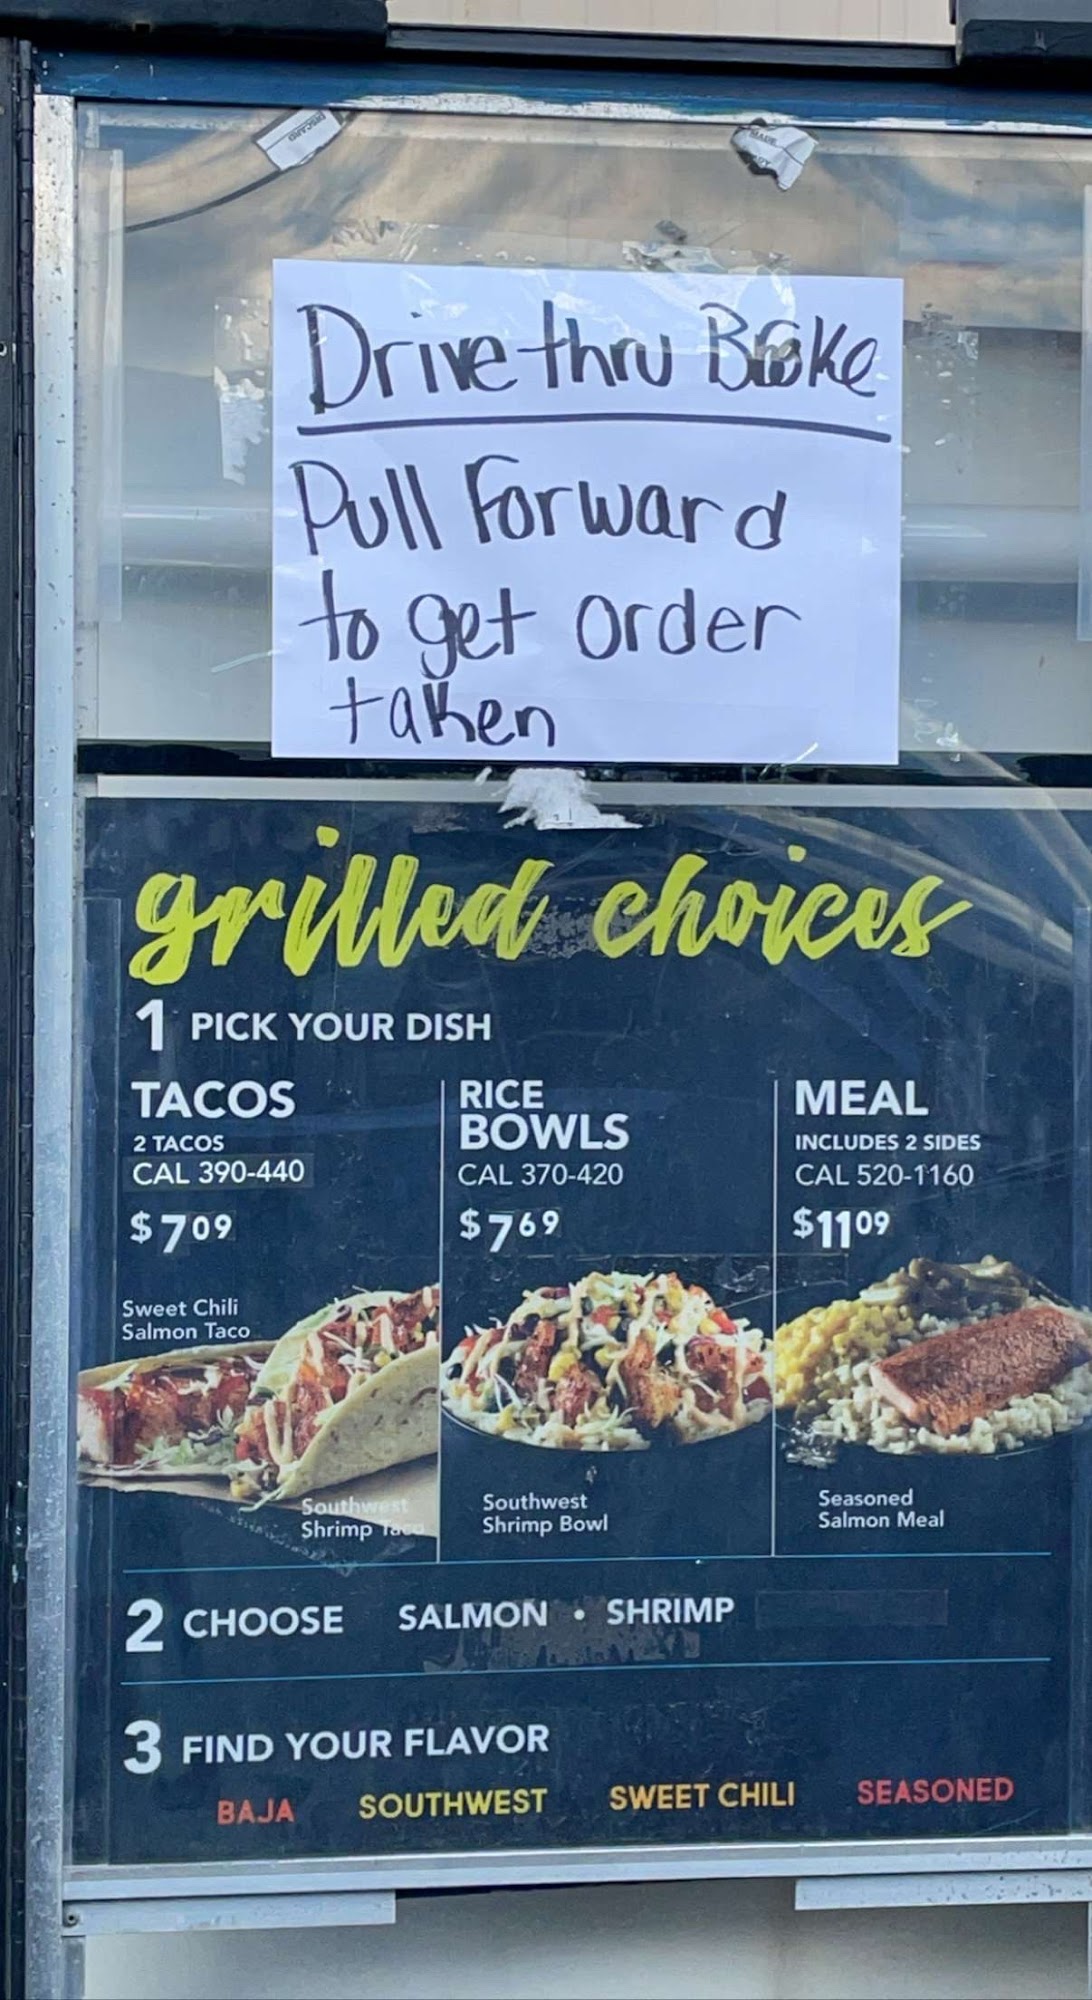 DISCARD
MADE
Drive thru Broke
Pull Forward
to get order
taken
grilled choices
1 PICK YOUR DISH
TACOS
2 TACOS
CAL 390-440
$7 09
Sweet Chili
Salmon Taco
Southwest
Shrimp Taco
RICE
BOWLS
CAL 370-420
$7 69
Southwest
Shrimp Bowl
MEAL
INCLUDES 2 SIDES
CAL 520-1160
$11 09
Seasoned
Salmon Meal
2 CHOOSE SALMON • SHRIMP
3 FIND YOUR FLAVOR
BAJA SOUTHWEST SWEET CHILI SEASONED